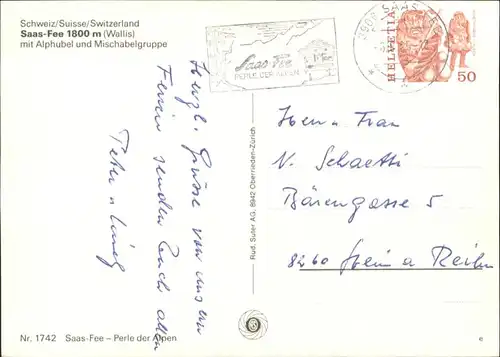 Schweiz/Suisse/Switzerland
Saas-Fee 1800 m (Wallis)
mit Alphubel und Mischabelgruppe
Saas-Fee
PERLE DER ALPEN
HELVETIA
50
Herzl. Grüsse von unsern
Ferien senden Euch allen
Peter u.
Herr u. Frau
N. Schaetti
Bärengasse 5
8260 Stein a Rhein
Rud. Suter AG, 8942 Oberrieden-Zürich
Nr. 1742 Saas-Fee – Perle der Alpen
e